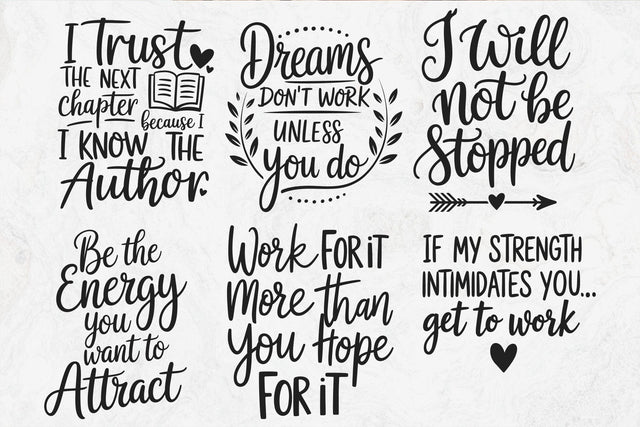 I Trust
THE NEXT
chapter
because I
I KNOW THE
Author.
Dreams
DON'T WORK
UNLESS
you do
I Will
not be
Stopped
Be the
Energy
you
want to
Attract
Work FOR iT
More than
You Hope
FOR iT
IF MY STRENGTH
INTIMIDATES YOU...
get to work